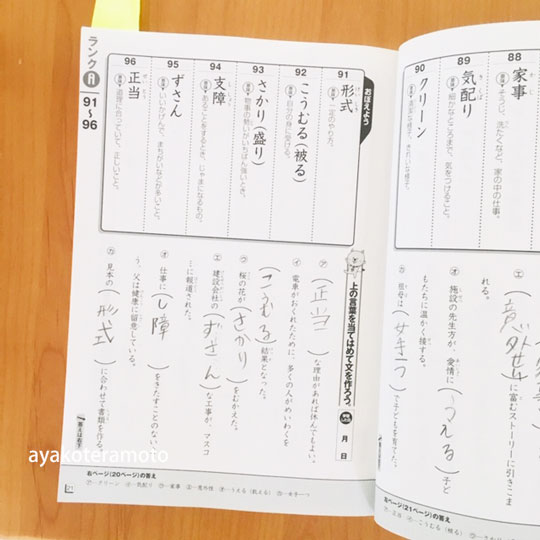 88
家事
意味▼そうじ、洗たくなど、家の中の仕事。
89
気配り
意味▼細かなところまで、気をつけること。
90
クリーン
エ
(意外性)に富むストーリーに引きこま
れる。
オ 施設の先生方が、愛情に(うえる)子ど
もたちに温かく接する。
カ 祖母は(女手一つ)で子どもを育てた。
ランクA
91〜96
おぼえよう
91
形式
意味▼一定のやり方。
92
こうむる(被る)
意味▼自分の身に受ける。
93
さかり(盛り)
意味▼物事の勢いがいちばん強いとき。
94
支障
意味▼あることをするとき、じゃまになるもの。
95
ずさん
意味▼いいかげんで、まちがいなどが多いこと。
96
正当
意味▼道理に合っていて、正しいこと。
上の言葉を当てはめて文を作ろう。
月 日
ア (正当)な理由があれば休んでもよい。
イ 電車がおくれたために、多くの人がめいわくを
(こうむる)結果となった。
ウ 桜の花が(さかり)をむかえた。
エ 建設会社の(ずさん)な工事が、マスコ
ミに報道された。
オ 仕事に(し障)をきたすことのない
う、父は健康に留意している。
カ 見本の(形式)に合わせて書類を作る。
答えは右下
右ページ(20ページ)の答え
ア…クリーン イ…気配り ウ…家事 エ…意外性 オ…うえる(飢える) カ…女手一つ
21
ayakoteramoto